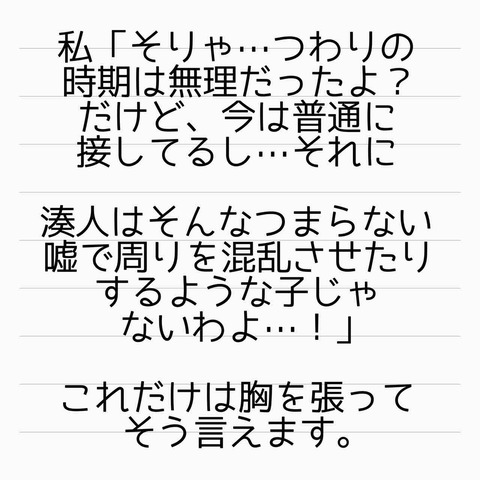 私「そりゃ…つわりの
時期は無理だったよ？
だけど、今は普通に
接してるし…それに
湊人はそんなつまらない
嘘で周りを混乱させたり
するような子じゃ
ないわよ…！」
これだけは胸を張って
そう言えます。